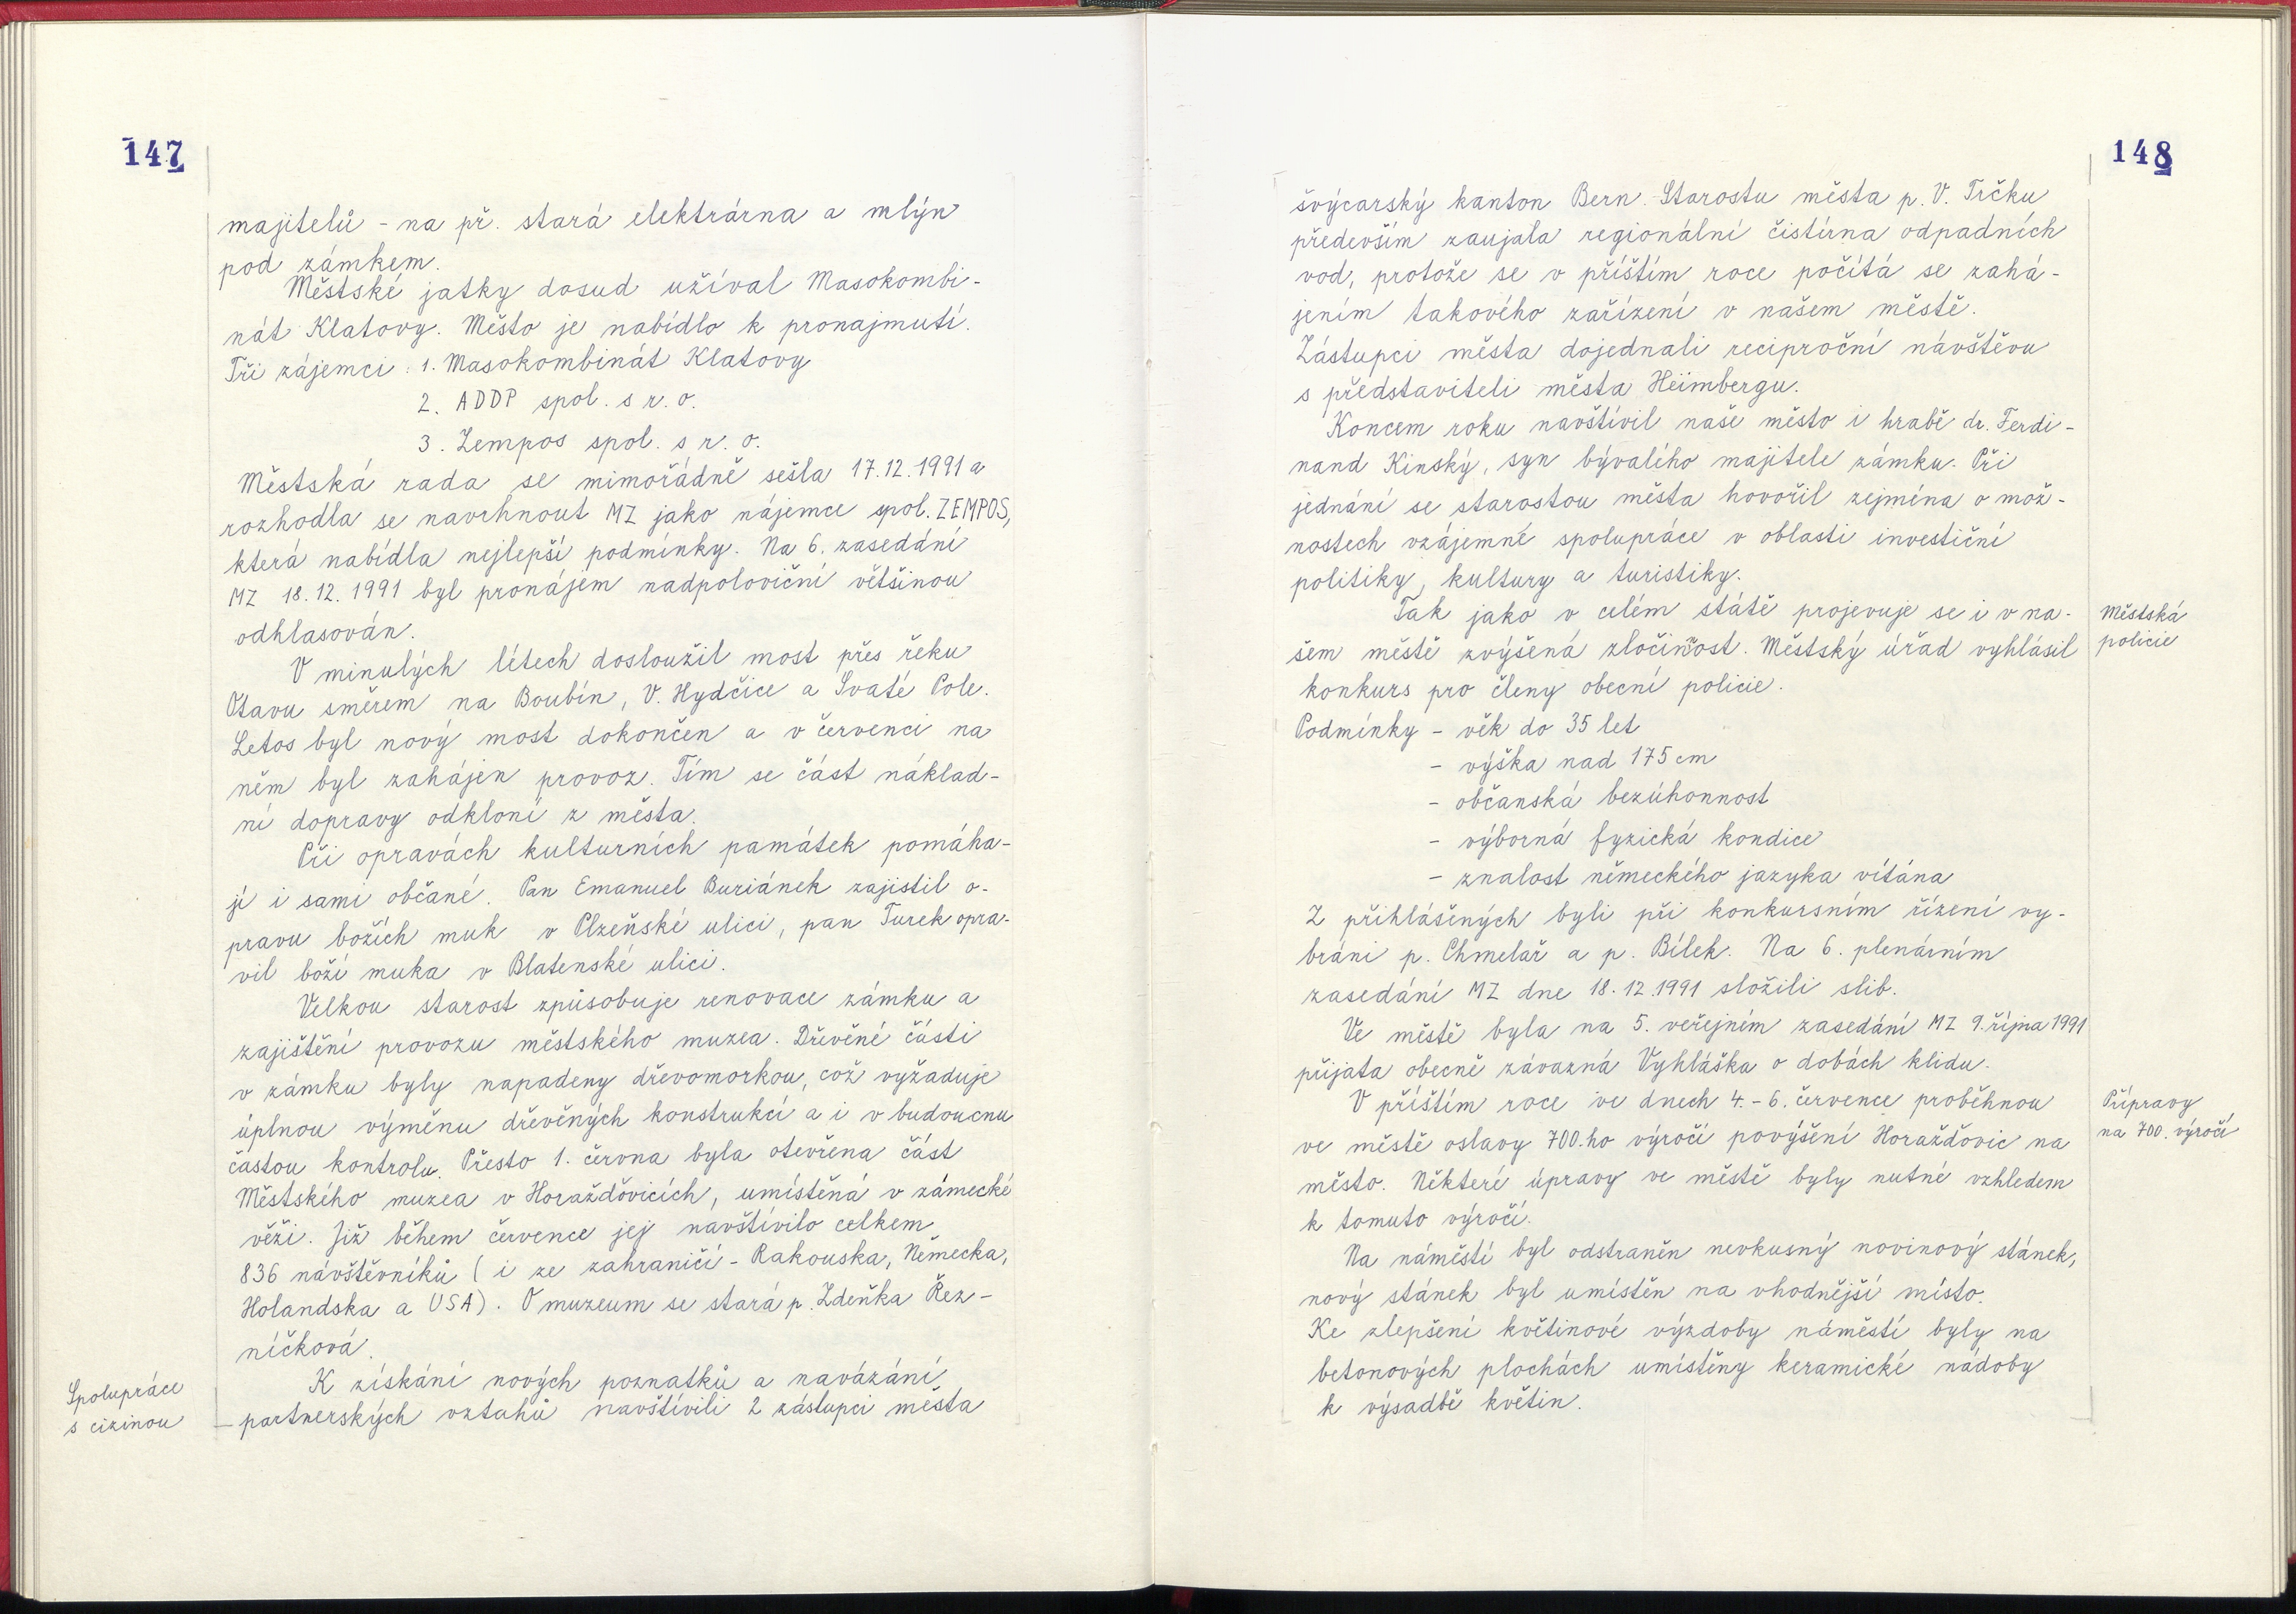 147
majitelů - na př. stará elektrárna a mlýn
pod zámkem.
Městské jatky dosud užíval Masokombi-
nát Klatovy. Město je nabídlo k pronajmutí.
Tři zájemci : 1. Masokombinát Klatovy
2. ADDP spol. s r. o.
3. Zempos spol. s r. o.
Městská rada se mimořádně sešla 17.12.1991 a
rozhodla se navrhnout MZ jako nájemce spol. ZEMPOS,
která nabídla nejlepší podmínky. Na 6. zasedání
MZ 18.12.1991 byl pronájem nadpoloviční většinou
odhlasován.
V minulých létech dosloužil most přes řeku
Otavu směrem na Boubín, V. Hydčice a Svaté Pole.
Letos byl nový most dokončen a v červenci na
něm byl zahájen provoz. Tím se část náklad-
ní dopravy odkloní z města.
Při opravách kulturních památek pomáha-
jí i sami občané. Pan Emanuel Buriánek zajistil o-
pravu božích muk v Plzeňské ulici, pan Turek opra-
vil boží muka v Blatenské ulici.
Velkou starost způsobuje renovace zámku a
zajištění provozu městského muzea. Dřevěné části
v zámku byly napadeny dřevomorkou, což vyžaduje
úplnou výměnu dřevěných konstrukcí a i v budoucnu
častou kontrolu. Přesto 1. června byla otevřena část
Městského muzea v Horažďovicích, umístěná v zámecké
věži. Již během července jej navštívilo celkem
836 návštěvníků ( i ze zahraničí - Rakouska, Německa,
Holandska a USA). O muzeum se stará p. Zdeňka Řez-
níčková.
K získání nových poznatků a navázání
partnerských vztahů navštívili 2 zástupci města
Spolupráce
s cizinou
148
švýcarský kanton Bern. Starostu města p. V. Trčku
především zaujala regionální čistírna odpadních
vod, protože se v příštím roce počítá se zahá-
jením takového zařízení v našem městě.
Zástupci města dojednali reciproční návštěvu
s představiteli města Heimbergu.
Koncem roku navštívil naše město i hrabě dr. Ferdi-
nand Kinský, syn bývalého majitele zámku. Při
jednání se starostou města hovořil zejména o mož-
nostech vzájemné spolupráce v oblasti investiční
politiky, kultury a turistiky.
Tak jako v celém státě projevuje se i v na-
šem městě zvýšená zločinnost. Městský úřad vyhlásil
konkurs pro členy obecní policie.
Podmínky - věk do 35 let
- výška nad 175 cm
- občanská bezúhonnost
- výborná fyzická kondice
- znalost německého jazyka vítána
Z přihlášených byli při konkursním řízení vy-
bráni p. Chmelař a p. Bílek. Na 6. plenárním
zasedání MZ dne 18.12.1991 složili slib.
Ve městě byla na 5. veřejném zasedání MZ 9. října 1991
přijata obecně závazná Vyhláška o dobách klidu.
V příštím roce ve dnech 4. - 6. července proběhnou
ve městě oslavy 700.ho výročí povýšení Horažďovic na
město. Některé úpravy ve městě byly nutné vzhledem
k tomuto výročí.
Na náměstí byl odstraněn nevkusný novinový stánek,
nový stánek byl umístěn na vhodnější místo.
Ke zlepšení květinové výzdoby náměstí byly na
betonových plochách umístěny keramické nádoby
k výsadbě květin.
Městská
policie
Přípravy
na 700. výročí